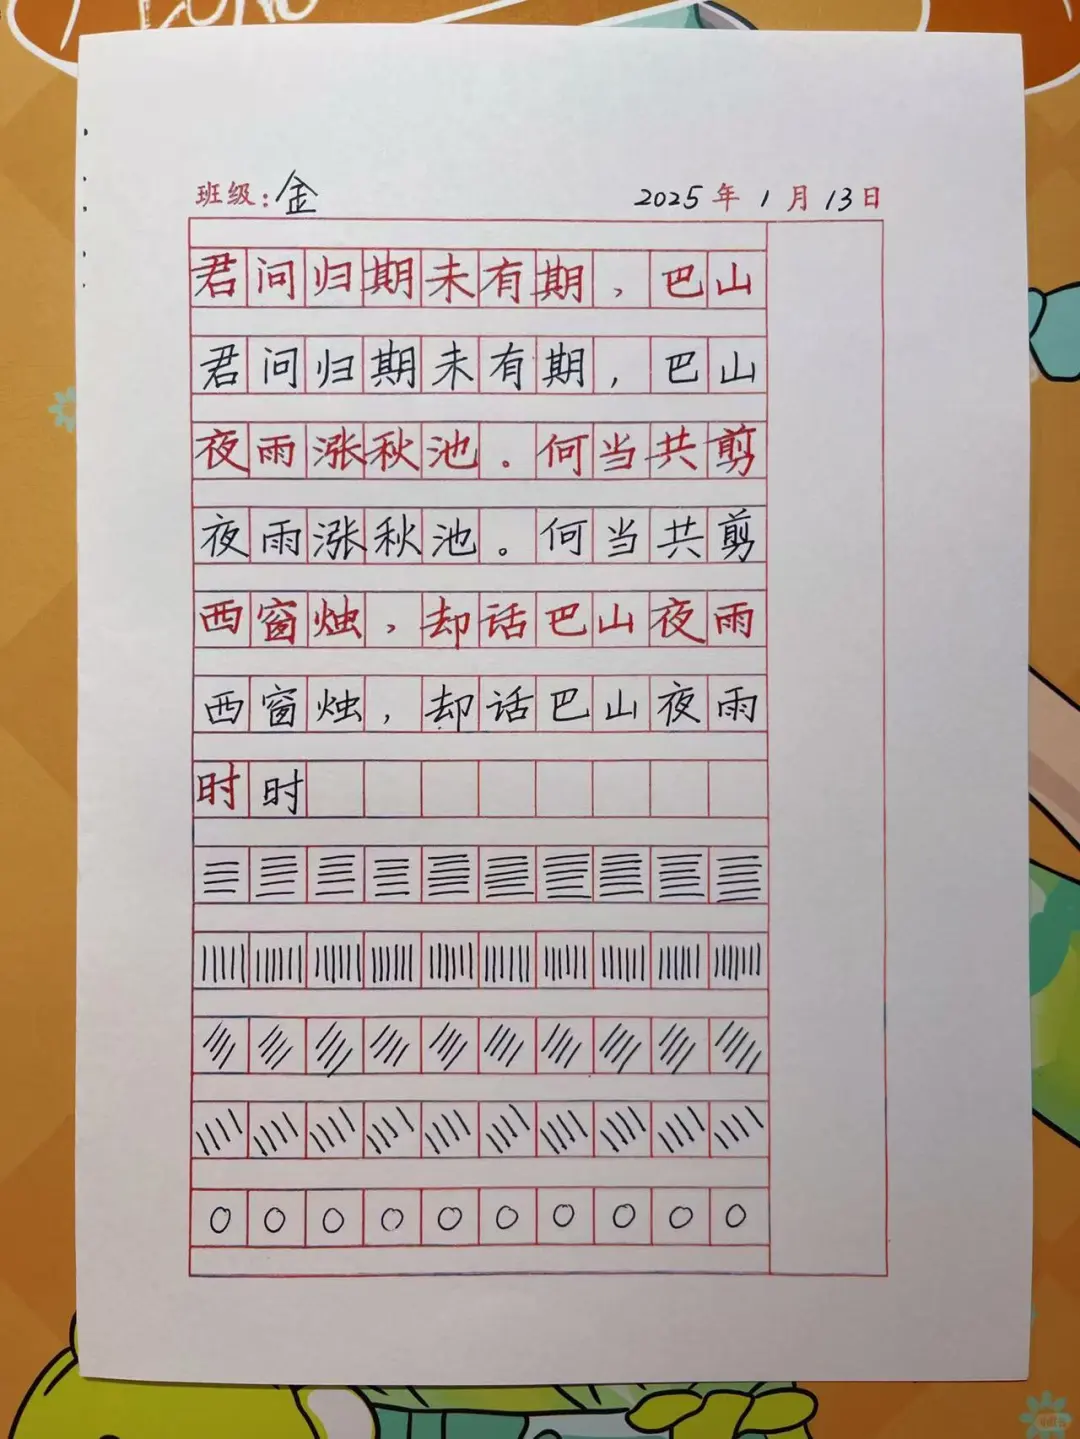 班级:金 2025年1月13日
君问归期未有期,巴山
君问归期未有期,巴山
夜雨涨秋池。何当共剪
夜雨涨秋池。何当共剪
西窗烛,却话巴山夜雨
西窗烛,却话巴山夜雨
时时